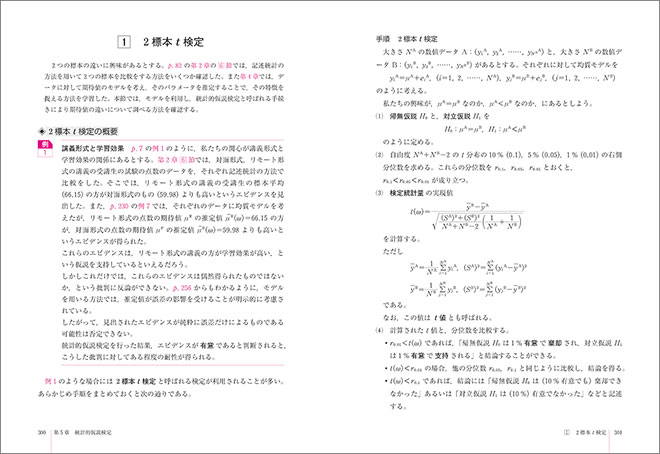 1 2標本 t 検定
2つの標本の違いに興味があるとする。p.82 の第2章6節では，記述統計の
方法を用いて2つの標本を比較をする方法をいくつか確認した。また第4章では，デ
ータに対して期待値のモデルを考え，そのパラメータを推定することで，その特徴を
捉える方法を学習した。本節では，モデルを利用し，統計的仮説検定と呼ばれる手続
きにより期待値の違いについて調べる方法を確認する。
◆ 2標本 t 検定の概要
例 1
講義形式と学習効果 p.7 の例1のように，私たちの関心が講義形式と
学習効果の関係にあるとする。第2章6節では，対面形式，リモート形
式の講義の受講生の試験の点数のデータを，それぞれ記述統計の方法で
比較をした。そこでは，リモート形式の講義の受講生の標本平均
(66.15) の方が対面形式のもの (59.98) よりも高いというエビデンスを見
出した。また，p.230 の例7では，それぞれのデータに均質モデルを考
えたが，リモート形式の点数の期待値 μᴿ の推定値 μ̂ᴿ(ω)=66.15 の方
が，対面形式の点数の期待値 μᶠ の推定値 μ̂ᶠ(ω)=59.98 よりも高いと
いうエビデンスが得られた。
これらのエビデンスは，リモート形式の講義の方が学習効果が高い，と
いう仮説を支持しているといえるだろう。
しかしこれだけでは，これらのエビデンスは偶然得られたものではない
か，という批判に反論ができない。p.256 からもわかるように，モデル
を用いる方法では，推定値が誤差の影響を受けることが明示的に考慮さ
れている。
したがって，見出されたエビデンスが純粋に誤差だけによるものである
可能性は否定できない。
統計的仮説検定を行った結果，エビデンスが有意であると判断されると，
こうした批判に対してある程度の耐性が得られる。
例1のような場合には 2標本 t 検定 と呼ばれる検定が利用されることが多い。
あらかじめ手順をまとめておくと次の通りである。
300 第5章 統計的仮説検定
手順 2標本 t 検定
大きさ Nᴬ の数値データ A：(y₁ᴬ, y₂ᴬ, ……, y_Nᴬᴬ) と，大きさ Nᴮ の数値デ
ータ B：(y₁ᴮ, y₂ᴮ, ……, y_Nᴮᴮ) があるとする。それぞれに対して均質モデルを
yᵢᴬ=μᴬ+eᵢᴬ, (i=1, 2, ……, Nᴬ), yⱼᴮ=μᴮ+eⱼᴮ, (j=1, 2, ……, Nᴮ)
のように考える。
私たちの興味が，μᴬ=μᴮ なのか，μᴬ<μᴮ なのか，にあるとしよう。
(1) 帰無仮説 H₀ と，対立仮説 H₁ を
H₀：μᴬ=μᴮ, H₁：μᴬ<μᴮ
のように定める。
(2) 自由度 Nᴬ+Nᴮ−2 の t 分布の 10% (0.1)，5% (0.05)，1% (0.01) の右側
分位数を求める。これらの分位数を r₀.₁，r₀.₀₅，r₀.₀₁ とおくと，
r₀.₁<r₀.₀₅<r₀.₀₁ が成り立つ。
(3) 検定統計量の実現値
t(ω)=(ȳᴮ−ȳᴬ)/√((Sᴬ)²+(Sᴮ)²/(Nᴬ+Nᴮ−2) (1/Nᴬ+1/Nᴮ))
を計算する。
ただし
ȳᴬ=1/Nᴬ Σ yᵢᴬ, (Sᴬ)²=Σ(yᵢᴬ−ȳᴬ)²
ȳᴮ=1/Nᴮ Σ yⱼᴮ, (Sᴮ)²=Σ(yⱼᴮ−ȳᴮ)²
である。
なお，この値は t 値 とも呼ばれる。
(4) 計算された t 値と，分位数を比較する。
・r₀.₀₁<t(ω) であれば，「帰無仮説 H₀ は1%有意で棄却され，対立仮説 H₁
は1%有意で支持される」と結論することができる。
・t(ω)<r₀.₀₁ の場合，他の分位数 r₀.₀₅，r₀.₁ と同じように比較し，結論を得る。
・t(ω)<r₀.₁ であれば，結論には「帰無仮説 H₀ は (10%有意でも) 棄却でき
なかった」あるいは「対立仮説 H₁ は (10%) 有意でなかった」などと記述
する。
1 2標本 t 検定 301